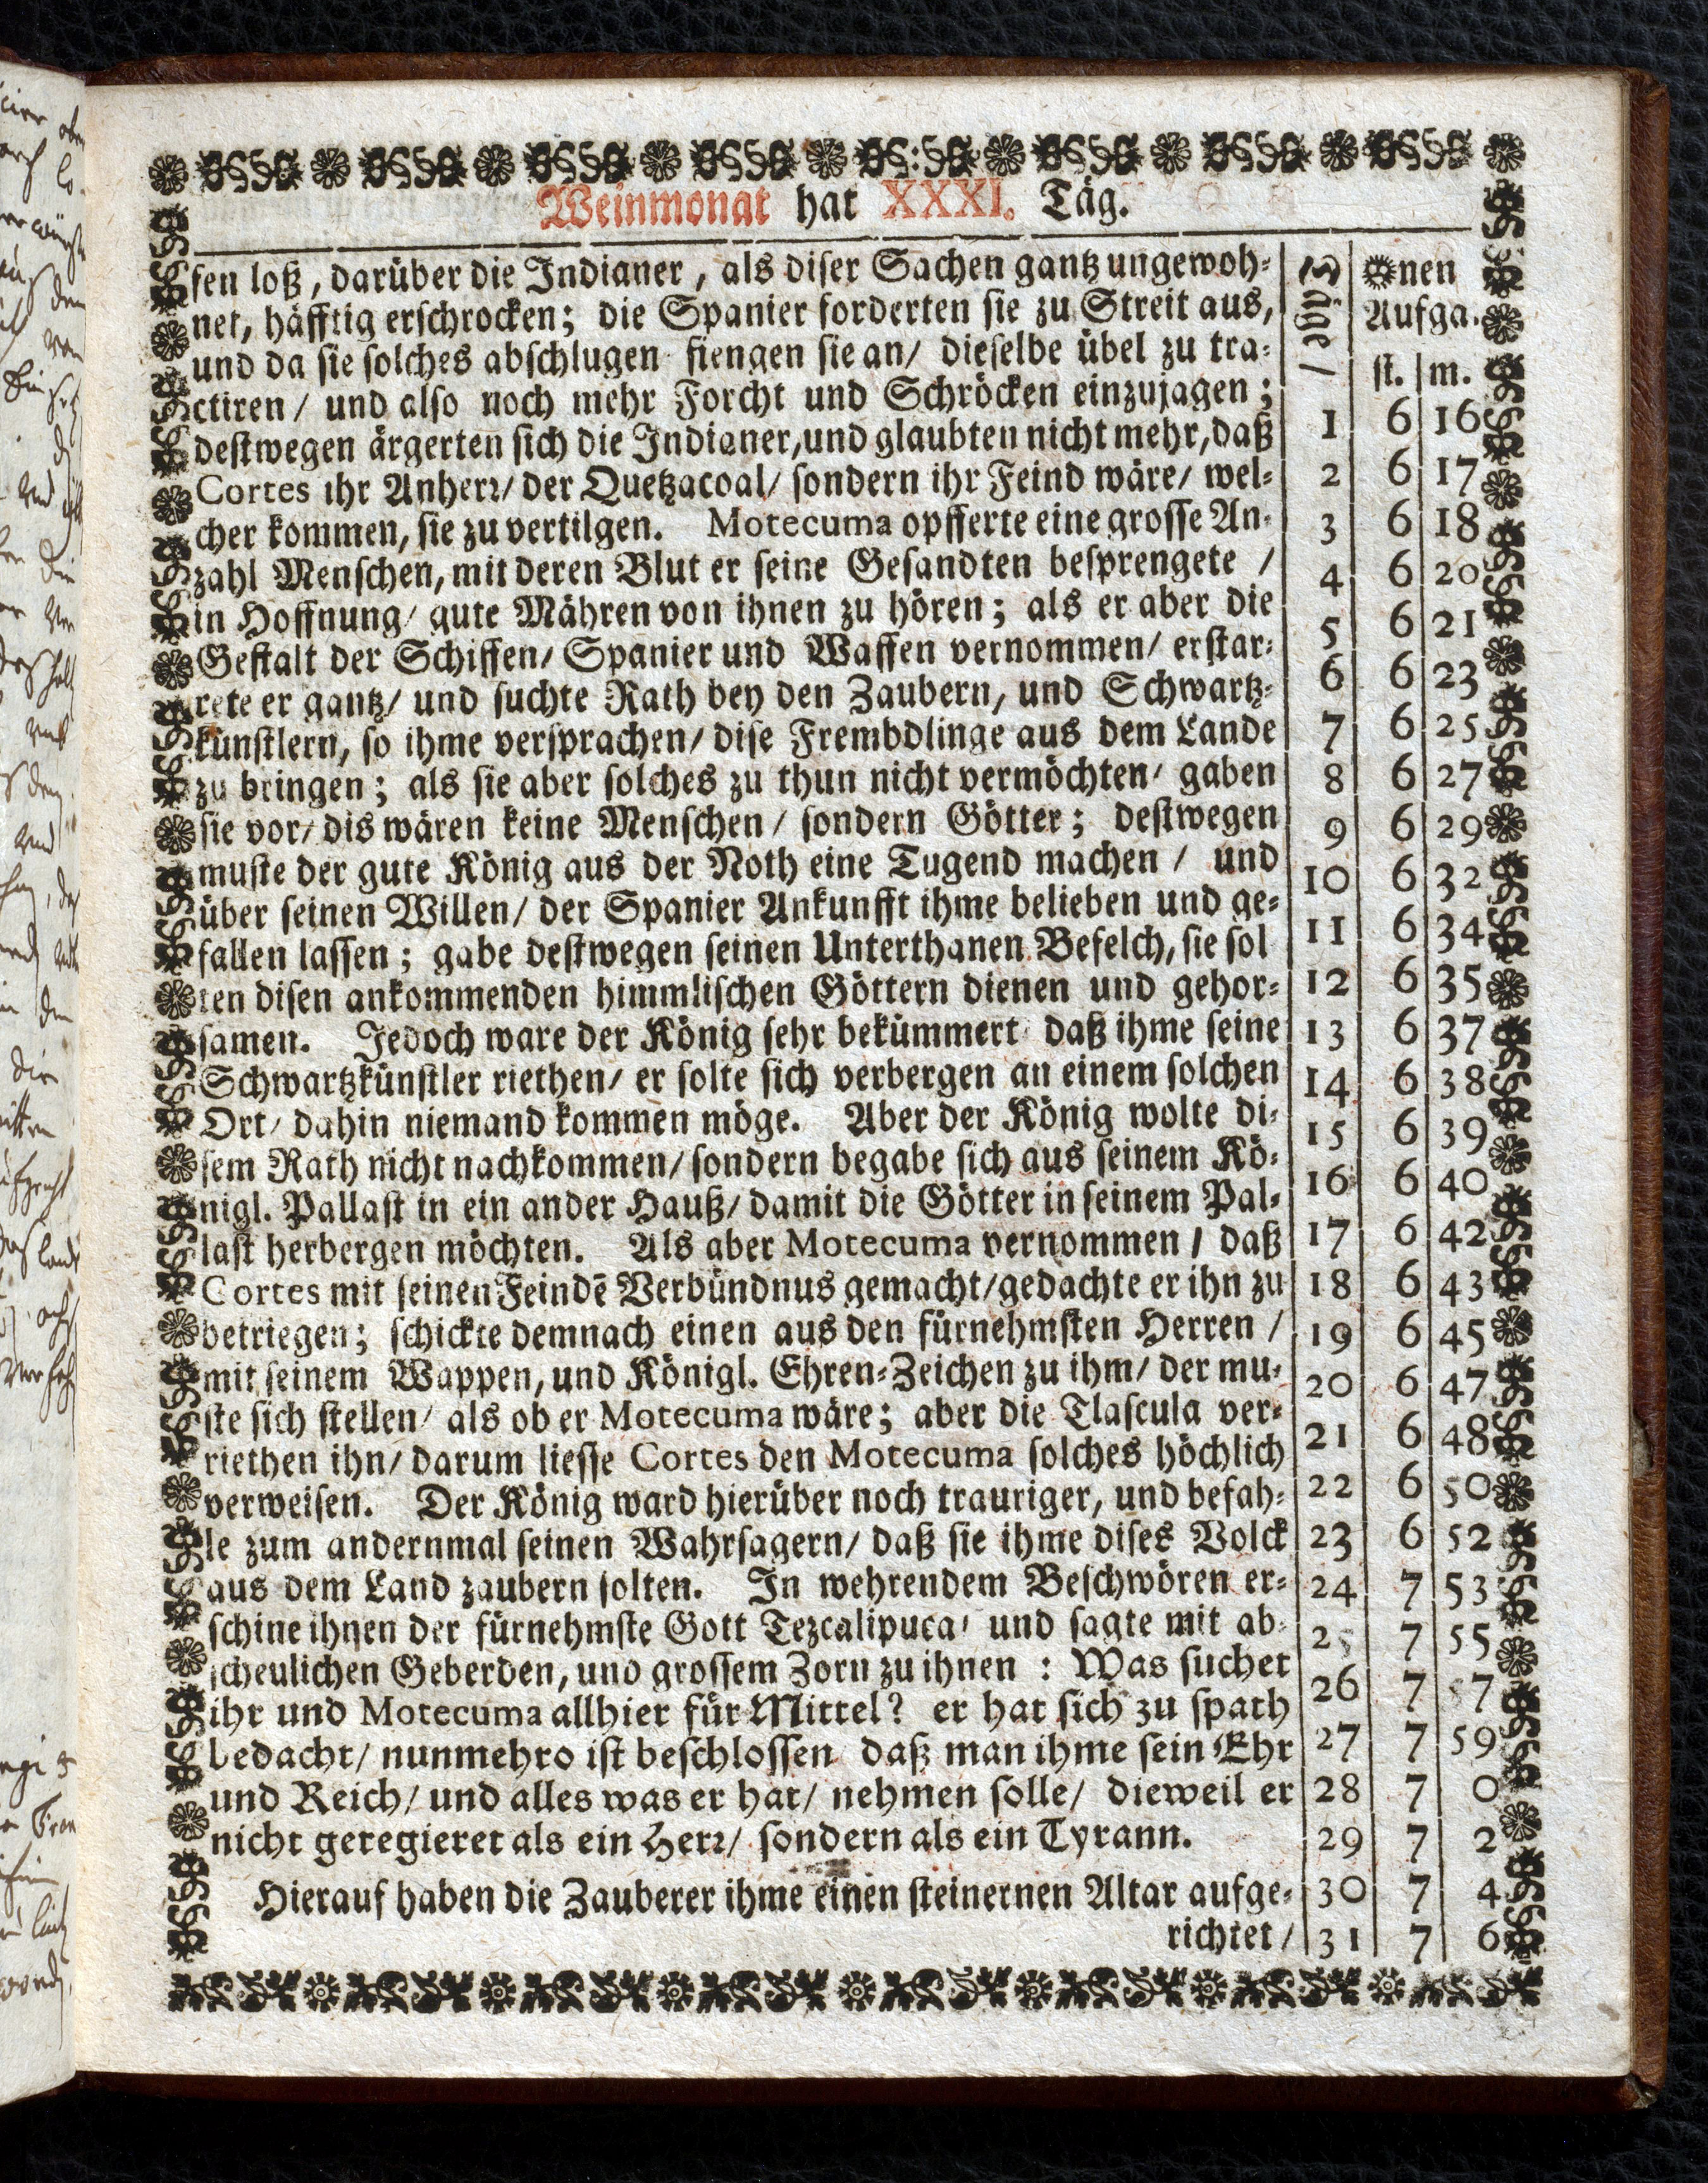 Weinmonat hat XXXI. Täg.
fen loß, darüber die Indianer, als diser Sachen gantz ungewoh-
net, häfftig erschrocken; die Spanier forderten sie zu Streit aus,
und da sie solches abschlugen fiengen sie an/ dieselbe übel zu tra-
ctiren/ und also noch mehr Forcht und Schröcken einzujagen;
destwegen ärgerten sich die Indianer, und glaubten nicht mehr, daß
Cortes ihr Anherr/ der Quetzacoal/ sondern ihr Feind wäre/ wel-
cher kommen, sie zu vertilgen. Motecuma opfferte eine grosse An-
zahl Menschen, mit deren Blut er seine Gesandten besprengete /
in Hoffnung/ gute Mähren von ihnen zu hören; als er aber die
Gestalt der Schiffen/ Spanier und Waffen vernommen/ erstar-
rete er gantz/ und suchte Rath bey den Zaubern, und Schwartz-
künstlern, so ihme versprachen/ dise Frembdlinge aus dem Lande
zu bringen; als sie aber solches zu thun nicht vermöchten/ gaben
sie vor/ dis wären keine Menschen/ sondern Götter; destwegen
muste der gute König aus der Noth eine Tugend machen / und
über seinen Willen/ der Spanier Ankunfft ihme belieben und ge-
fallen lassen; gabe destwegen seinen Unterthanen Befelch, sie sol
ten disen ankommenden himmlischen Göttern dienen und gehor-
samen. Jedoch ware der König sehr bekümmert daß ihme seine
Schwartzkünstler riethen/ er solte sich verbergen an einem solchen
Ort/ dahin niemand kommen möge. Aber der König wolte di-
sem Rath nicht nachkommen/ sondern begabe sich aus seinem Kö-
nigl. Pallast in ein ander Hauß/ damit die Götter in seinem Pal-
last herbergen möchten. Als aber Motecuma vernommen / daß
Cortes mit seinen Feindē Verbündnus gemacht/ gedachte er ihn zu
betriegen; schickte demnach einen aus den fürnehmsten Herren /
mit seinem Wappen, und Königl. Ehren-Zeichen zu ihm/ der mu-
ste sich stellen/ als ob er Motecuma wäre; aber die Tlascula ver-
riethen ihn/ darum liesse Cortes den Motecuma solches höchlich
verweisen. Der König ward hierüber noch trauriger, und befah-
le zum andernmal seinen Wahrsagern/ daß sie ihme dises Volck
aus dem Land zaubern solten. In wehrendem Beschwören er-
schine ihnen der fürnehmste Gott Tezcalipuca/ und sagte mit ab-
scheulichen Geberden, und grossem Zorn zu ihnen : Was suchet
ihr und Motecuma allhier für Mittel? er hat sich zu spath
bedacht/ nunmehro ist beschlossen daß man ihme sein Ehr
und Reich/ und alles was er hat/ nehmen solle/ dieweil er
nicht geregieret als ein Herr/ sondern als ein Tyrann.
Hierauf haben die Zauberer ihme einen steinernen Altar aufge-
richtet /
nen
Aufga.
st. m.
1 6 16
2 6 17
3 6 18
4 6 20
5 6 21
6 6 23
7 6 25
8 6 27
9 6 29
10 6 32
11 6 34
12 6 35
13 6 37
14 6 38
15 6 39
16 6 40
17 6 42
18 6 43
19 6 45
20 6 47
21 6 48
22 6 50
23 6 52
24 7 53
25 7 55
26 7 57
27 7 59
28 7 0
29 7 2
30 7 4
31 7 6